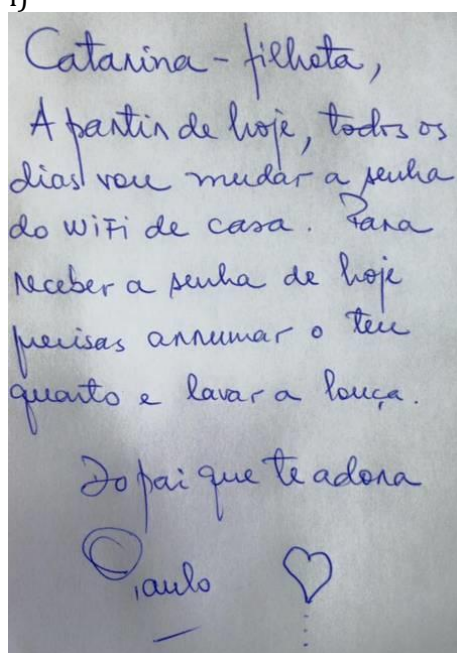 Catarina - filhota,
A partir de hoje, todos os
dias vou mudar a senha
do WiFi de casa. Para
receber a senha de hoje
precisas arrumar o teu
quarto e lavar a louça.
Do pai que te adora
Paulo